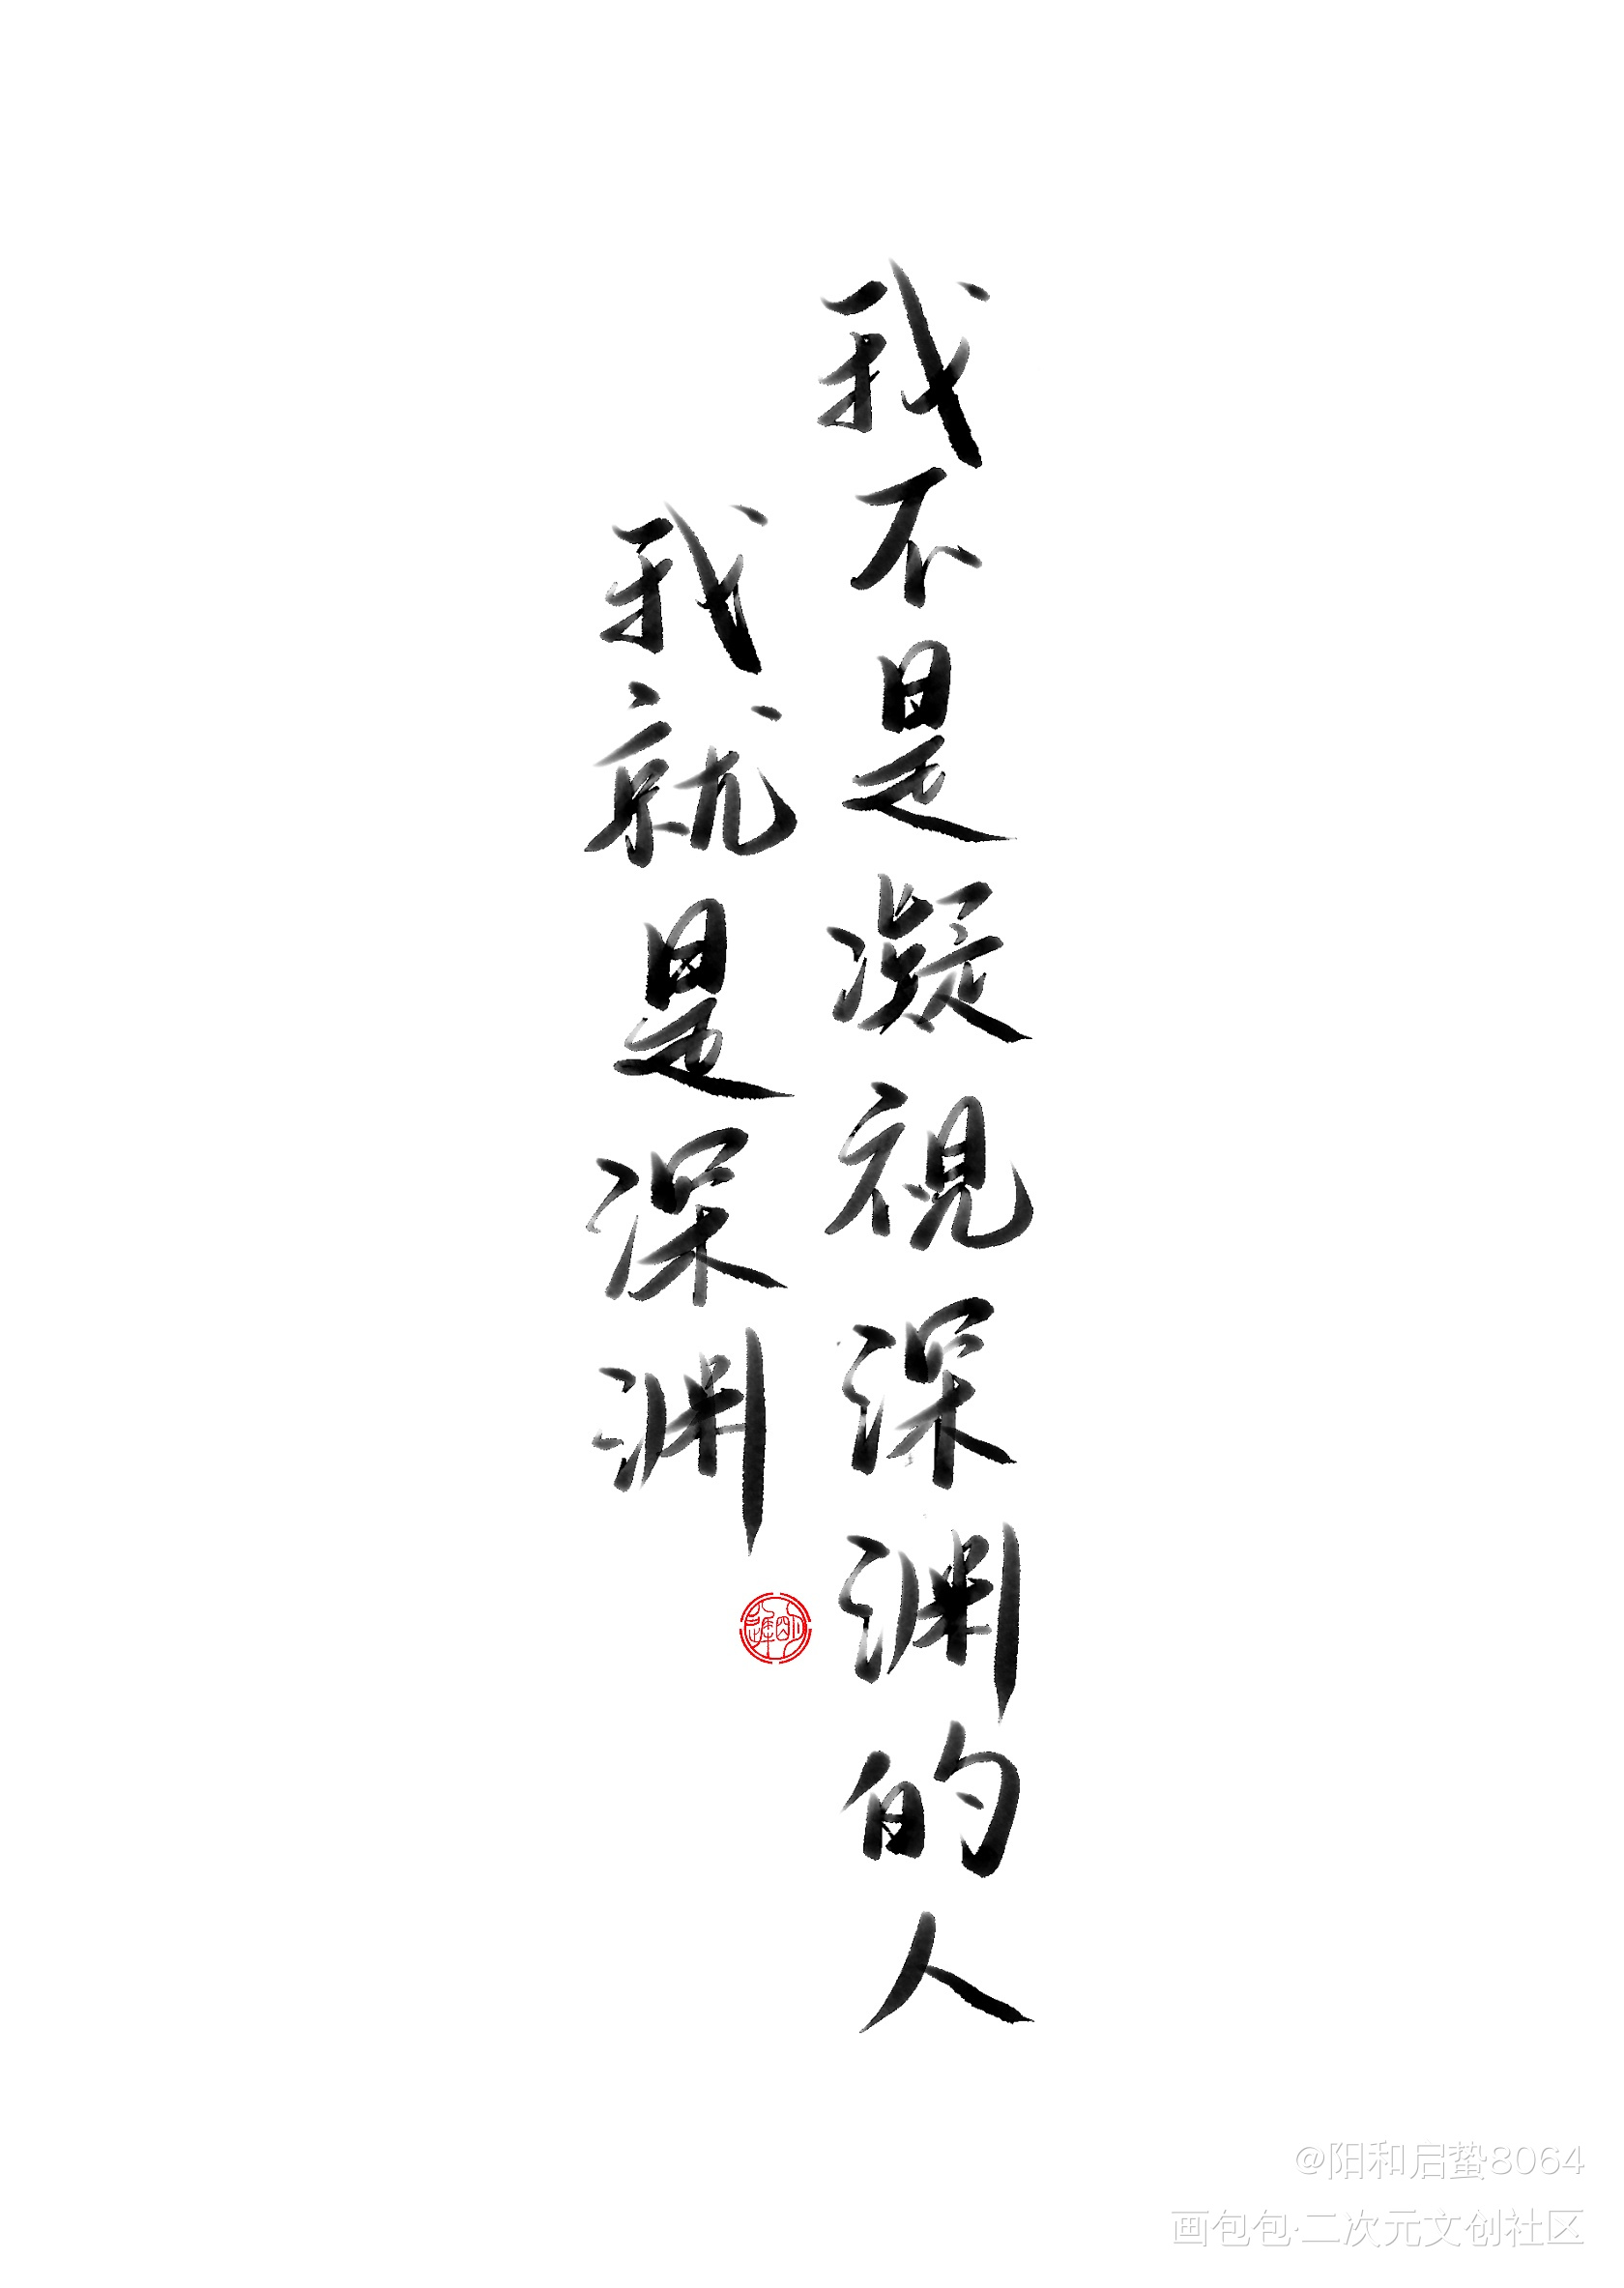 我不是凝視深渊的人
我就是深渊
@阳和启蛰8064
画包包·二次元文创社区